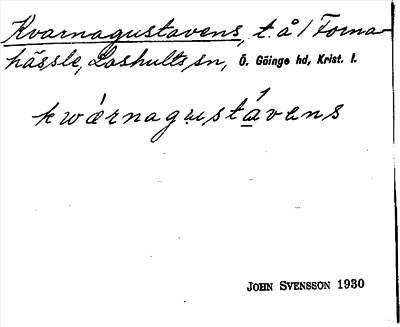 Kvarnagustavens, t. å 1 Forna-
hässle, Loshults sn, Ö. Göinge hd, Krist. l.
kwárnagustávens
JOHN SVENSSON 1930